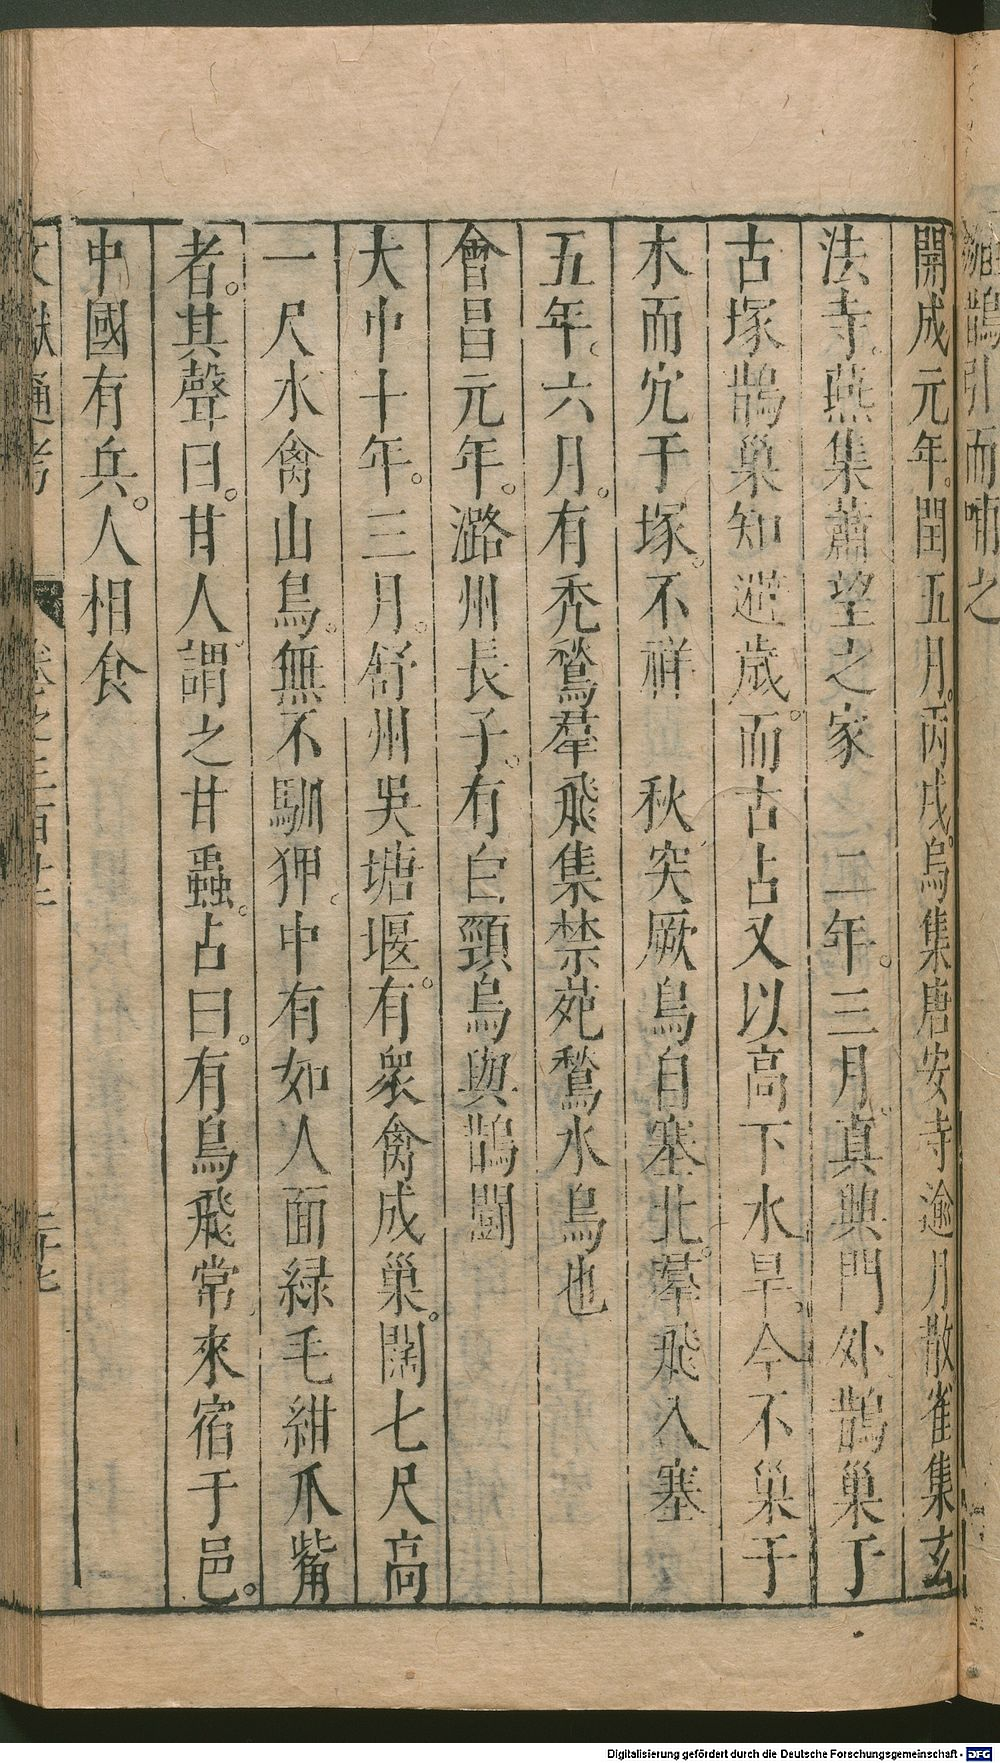 鵲引而哺之
開成元年。閏五月。丙戌。烏集唐安寺逾月散雀集玄
法寺。燕集蕭望之家　二年。三月。真興門外鵲巢于
古塚鵲巢知避歲。而古占又以高下水旱。今不巢于
木而穴于塚。不祥　秋突厥鳥自塞北。羣飛入塞
五年。六月。有禿鶖羣飛集禁苑鶖水鳥也
會昌元年。潞州長子。有白頸烏與鵲鬬
大中十年。三月。舒州吳塘堰。有衆禽成巢。闊七尺高
一尺水禽山鳥。無不馴狎。中有如人面綠毛紺爪觜
者。其聲曰。甘人。謂之甘蟲。占曰。有鳥飛常來宿于邑。
中國有兵。人相食
文獻通考　卷之三百十二　二十七
Digitalisierung gefördert durch die Deutsche Forschungsgemeinschaft - DFG